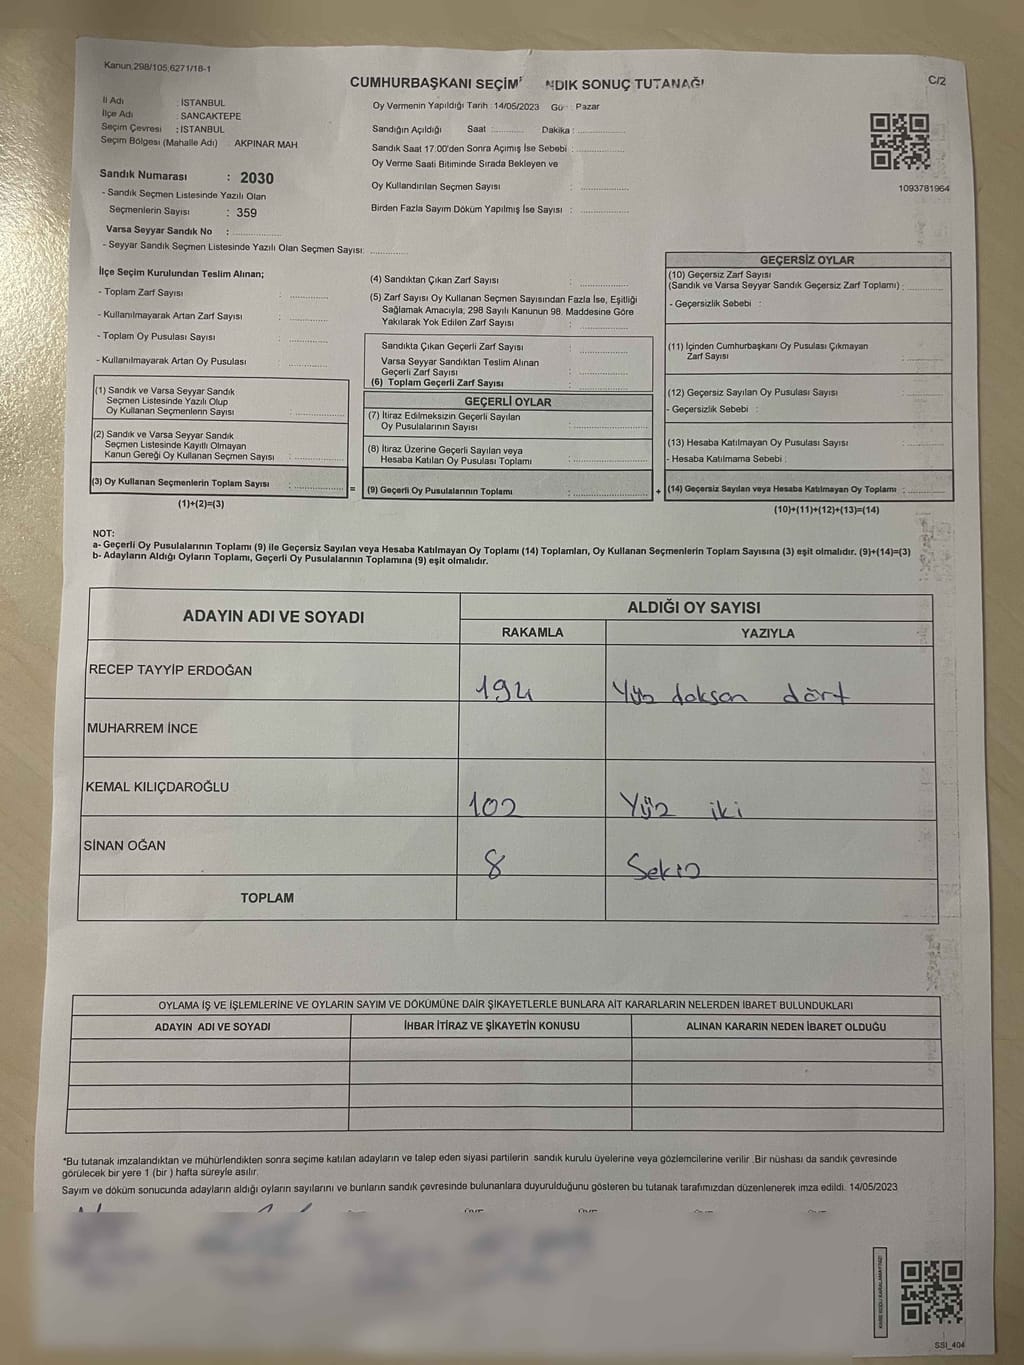 Kanun 298/105,6271/18-1
C/2
CUMHURBAŞKANI SEÇİM NDIK SONUÇ TUTANAĞI
İl Adı : İSTANBUL
İlçe Adı : SANCAKTEPE
Seçim Çevresi : İSTANBUL
Seçim Bölgesi (Mahalle Adı) : AKPINAR MAH
Oy Vermenin Yapıldığı Tarih : 14/05/2023 Gü : Pazar
Sandığın Açıldığı Saat :............ Dakika :................
Sandık Saat 17:00'den Sonra Açımış İse Sebebi :................
Oy Verme Saati Bitiminde Sırada Bekleyen ve
Oy Kullandırılan Seçmen Sayısı : ................
Birden Fazla Sayım Döküm Yapılmış İse Sayısı : ................
1093781964
Sandık Numarası : 2030
- Sandık Seçmen Listesinde Yazılı Olan
Seçmenlerin Sayısı : 359
Varsa Seyyar Sandık No : ................
- Seyyar Sandık Seçmen Listesinde Yazılı Olan Seçmen Sayısı: ............
İlçe Seçim Kurulundan Teslim Alınan;
- Toplam Zarf Sayısı : ............
- Kullanılmayarak Artan Zarf Sayısı : ............
- Toplam Oy Pusulası Sayısı : ............
- Kullanılmayarak Artan Oy Pusulası ............
(1) Sandık ve Varsa Seyyar Sandık
Seçmen Listesinde Yazılı Olup
Oy Kullanan Seçmenlerin Sayısı : ................
(2) Sandık ve Varsa Seyyar Sandık
Seçmen Listesinde Kayıtlı Olmayan
Kanun Gereği Oy Kullanan Seçmen Sayısı : ................
(3) Oy Kullanan Seçmenlerin Toplam Sayısı : ................
(1)+(2)=(3)
(4) Sandıktan Çıkan Zarf Sayısı : ................
(5) Zarf Sayısı Oy Kullanan Seçmen Sayısından Fazla İse, Eşitliği
Sağlamak Amacıyla; 298 Sayılı Kanunun 98. Maddesine Göre
Yakılarak Yok Edilen Zarf Sayısı : ................
Sandıkta Çıkan Geçerli Zarf Sayısı : ................
Varsa Seyyar Sandıktan Teslim Alınan
Geçerli Zarf Sayısı : ................
(6) Toplam Geçerli Zarf Sayısı : ................
GEÇERLİ OYLAR
(7) İtiraz Edilmeksizin Geçerli Sayılan
Oy Pusulalarının Sayısı : ................
(8) İtiraz Üzerine Geçerli Sayılan veya
Hesaba Katılan Oy Pusulası Toplamı : ................
= (9) Geçerli Oy Pusulalarının Toplamı : ................
GEÇERSİZ OYLAR
(10) Geçersiz Zarf Sayısı
(Sandık ve Varsa Seyyar Sandık Geçersiz Zarf Toplamı) : ............
- Geçersizlik Sebebi :
(11) İçinden Cumhurbaşkanı Oy Pusulası Çıkmayan
Zarf Sayısı : ............
(12) Geçersiz Sayılan Oy Pusulası Sayısı : ............
- Geçersizlik Sebebi :
(13) Hesaba Katılmayan Oy Pusulası Sayısı : ............
- Hesaba Katılmama Sebebi :
+ (14) Geçersiz Sayılan veya Hesaba Katılmayan Oy Toplamı : ............
(10)+(11)+(12)+(13)=(14)
NOT:
a- Geçerli Oy Pusulalarının Toplamı (9) ile Geçersiz Sayılan veya Hesaba Katılmayan Oy Toplamı (14) Toplamları, Oy Kullanan Seçmenlerin Toplam Sayısına (3) eşit olmalıdır. (9)+(14)=(3)
b- Adayların Aldığı Oyların Toplamı, Geçerli Oy Pusulalarının Toplamına (9) eşit olmalıdır.
ADAYIN ADI VE SOYADI ALDIĞI OY SAYISI
RAKAMLA YAZIYLA
RECEP TAYYİP ERDOĞAN 194 Yüz doksan dört
MUHARREM İNCE
KEMAL KILIÇDAROĞLU 102 Yüz iki
SİNAN OĞAN 8 Sekiz
TOPLAM
OYLAMA İŞ VE İŞLEMLERİNE VE OYLARIN SAYIM VE DÖKÜMÜNE DAİR ŞİKAYETLERLE BUNLARA AİT KARARLARIN NELERDEN İBARET BULUNDUKLARI
ADAYIN ADI VE SOYADI İHBAR İTİRAZ VE ŞİKAYETİN KONUSU ALINAN KARARIN NEDEN İBARET OLDUĞU
*Bu tutanak imzalandıktan ve mühürlendikten sonra seçime katılan adayların ve talep eden siyasi partilerin sandık kurulu üyelerine veya gözlemcilerine verilir .Bir nüshası da sandık çevresinde
görülecek bir yere 1 (bir ) hafta süreyle asılır.
Sayım ve döküm sonucunda adayların aldığı oyların sayılarını ve bunların sandık çevresinde bulunanlara duyurulduğunu gösteren bu tutanak tarafımızdan düzenlenerek imza edildi. 14/05/2023
KARE KODU KARALAMAYINIZ!
SSI_404